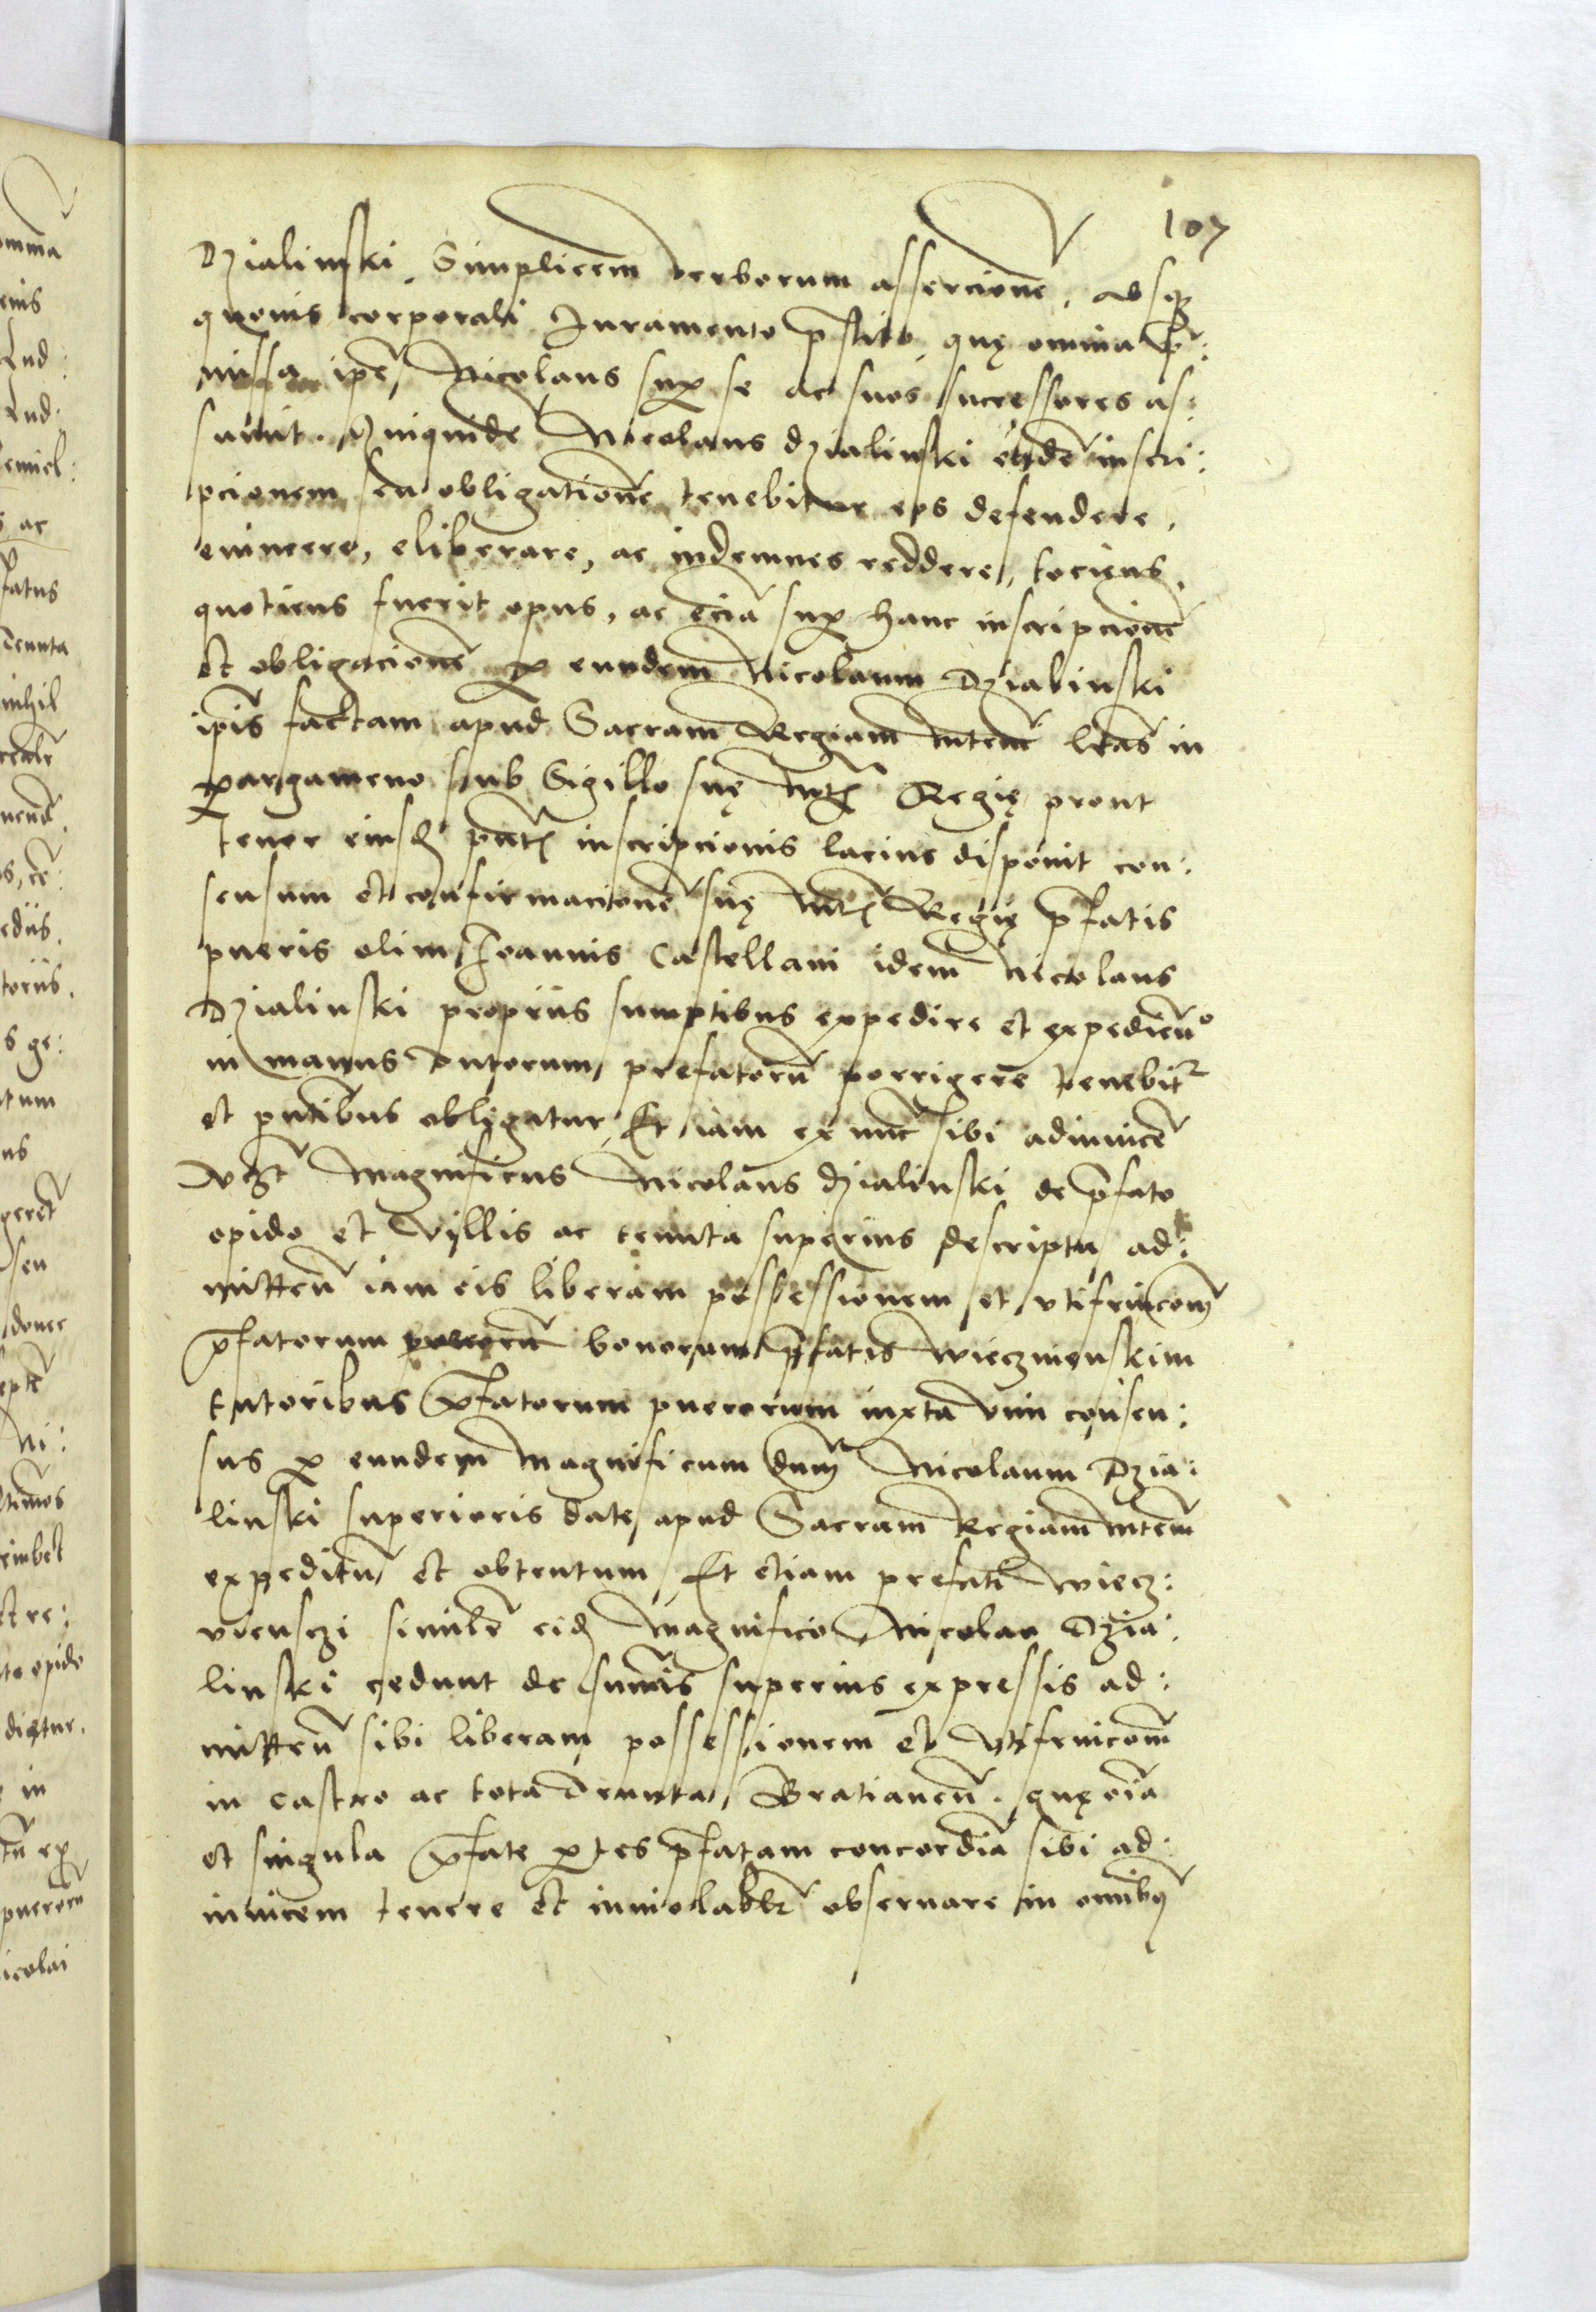 107
Dzialinski. Simplicem verborum assercionē, absq3
quovis corporali Iuramento p̄stito, quę omnia p̄:
missa ipē Nicolaus sup se ac suos successores as:
sumit. Quiquidē Nicolaus Dzialinski eādē inscri:
pcionem seu obligationē tenebitur eos defendere,
evincere, eliberare, ac indemnes reddere, tociens,
quotiens fuerit opus, ac eciā sup hanc inscripcionē
et obligacionē p eundem Nicolaum Dzialinski
ip̄is factam apud Sacram Regiam Mtem̄ lr̄as in
pargameno sub Sigillo suę Mt̄is Regię prout
tenor eiusd̄ pn̄tis inscripcionis lacius disponit con:
sensum et confirmacionē suę Mt̄is Regię p̄fatis
pueris olim Joannis Castellani idem Nicolaus
Dzialinski propriis sumptibus expedire et expedien̄
in manus tutorum prefatorū porrigere tenebit~
et pn̄tibus obligatur, Et iam ex nūc sibi adinvicē
v3t Magnificus Nicolaus Dzialinski de p̄fato
opido et Villis ac tenuta superius descripta ad:
mitten̄ iam eis liberam possessionem et utifruicom̄
p̄fatorum bonorum p̄fatis Wieczwienskim
tutoribus p̄fatorum puerorum iuxta vim consen:
sus p eundem Magnificum dn̄m Nicolaum Dzia:
linski superioris date apud Sacram Regiam Mtem̄
expeditū et obtentum, Et etiam prefati Wiecz:
vienschi similr̄ eid̄ Magnifico Nicolao Dzia:
linski cedunt de sum̄is superius expressis ad:
mitten̄ sibi liberam possessionem et utifruicom̄
in castro ac tota tenuta Bratianen̄. quę oīa
et singula p̄fate ptes p̄fatam concordiā sibi ad:
invicem tenere et inviolabilr̄ observare in omībus